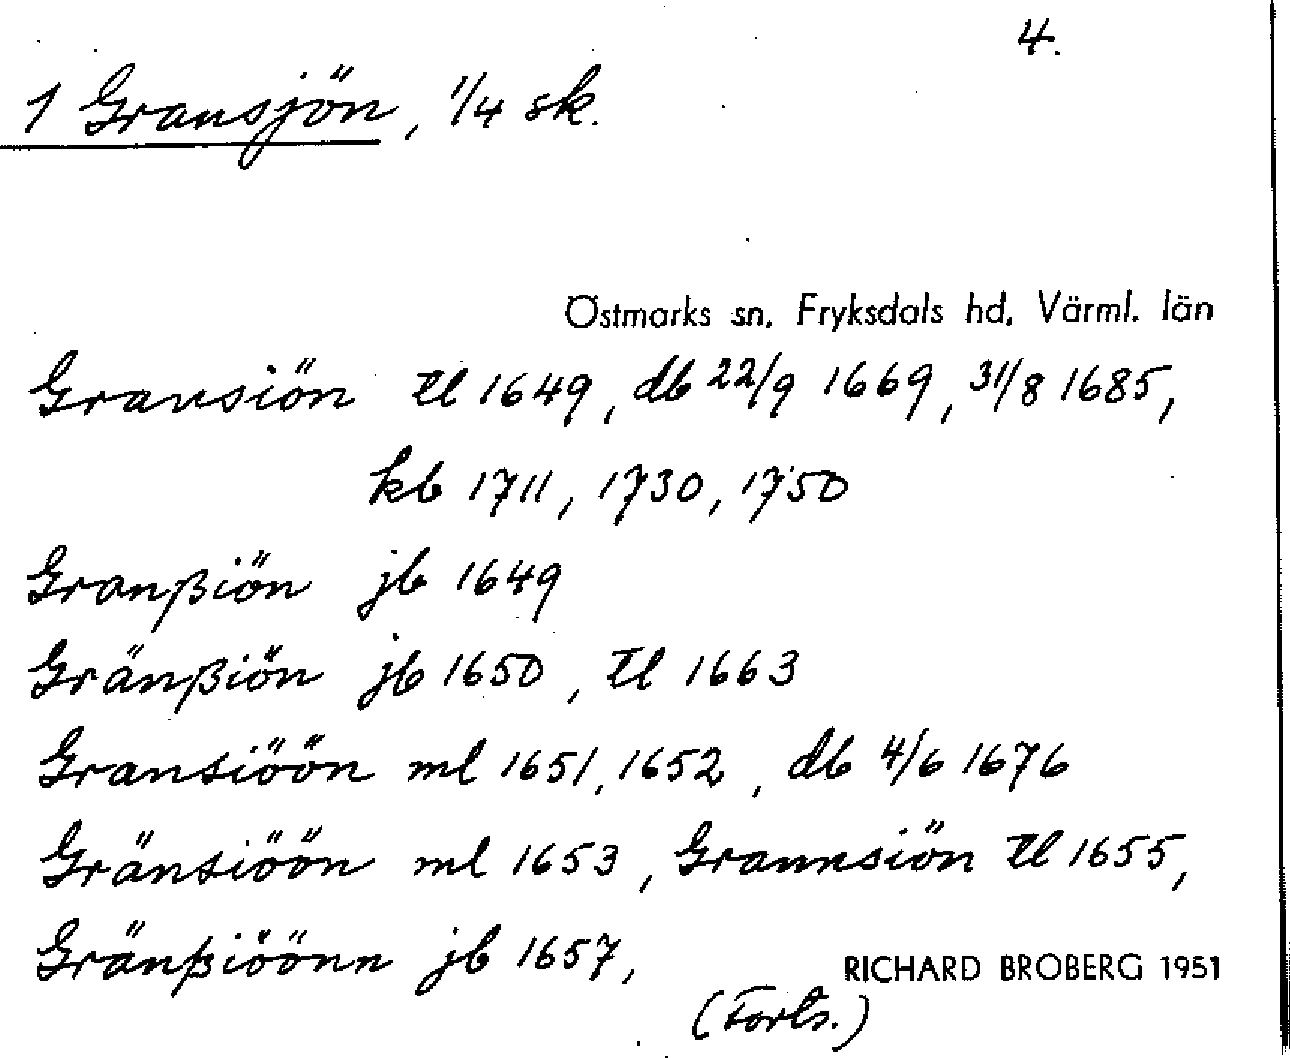 4.
1 Gransjön, 1/4 sk.
Östmarks sn. Fryksdals hd. Värml. län
Gransiön tl 1649, db 22/9 1669, 31/8 1685,
kb 1711, 1730, 1750
Granßiön jb 1649
Gränßiön jb 1650, tl 1663
Gransiöön ml 1651, 1652, db 4/6 1676
Gränsiöön ml 1653, Grannsiön tl 1655,
Gränßiöönn jb 1657,
RICHARD BROBERG 1951
(Forts.)